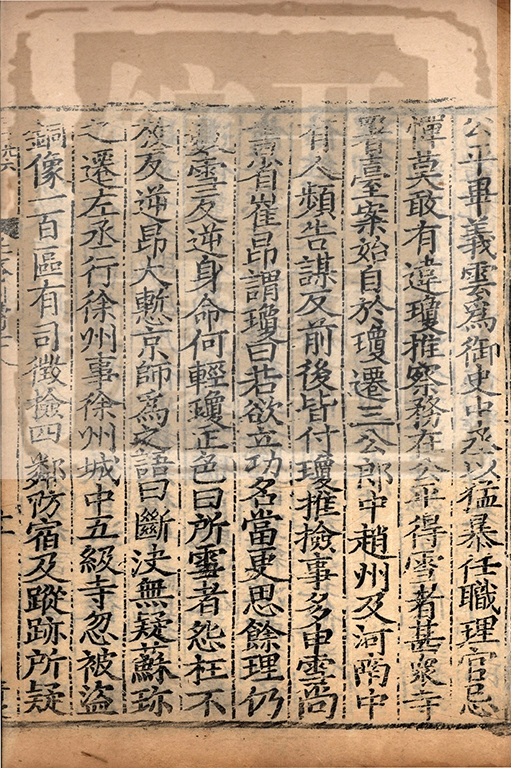 公平畢義雲爲御史中丞以猛暴任職理官忌
憚莫敢有違瓊推察務在公平得雪者甚衆寺
署臺案始自於瓊遷三公郎中趙州及河間中
有人頻告謀反前後皆付瓊推撿事多申雪尚
書省崔昂謂瓊曰若欲立功名當更思餘理仍
數雪反逆身命何輕瓊正色曰所雪者怨枉不
放反逆昂大慙京師爲之語曰斷決無疑蘇珎
之遷左丞行徐州事徐州城中五級寺忽被盜
銅像一百區有司徵撿四鄰防宿及蹤跡所疑